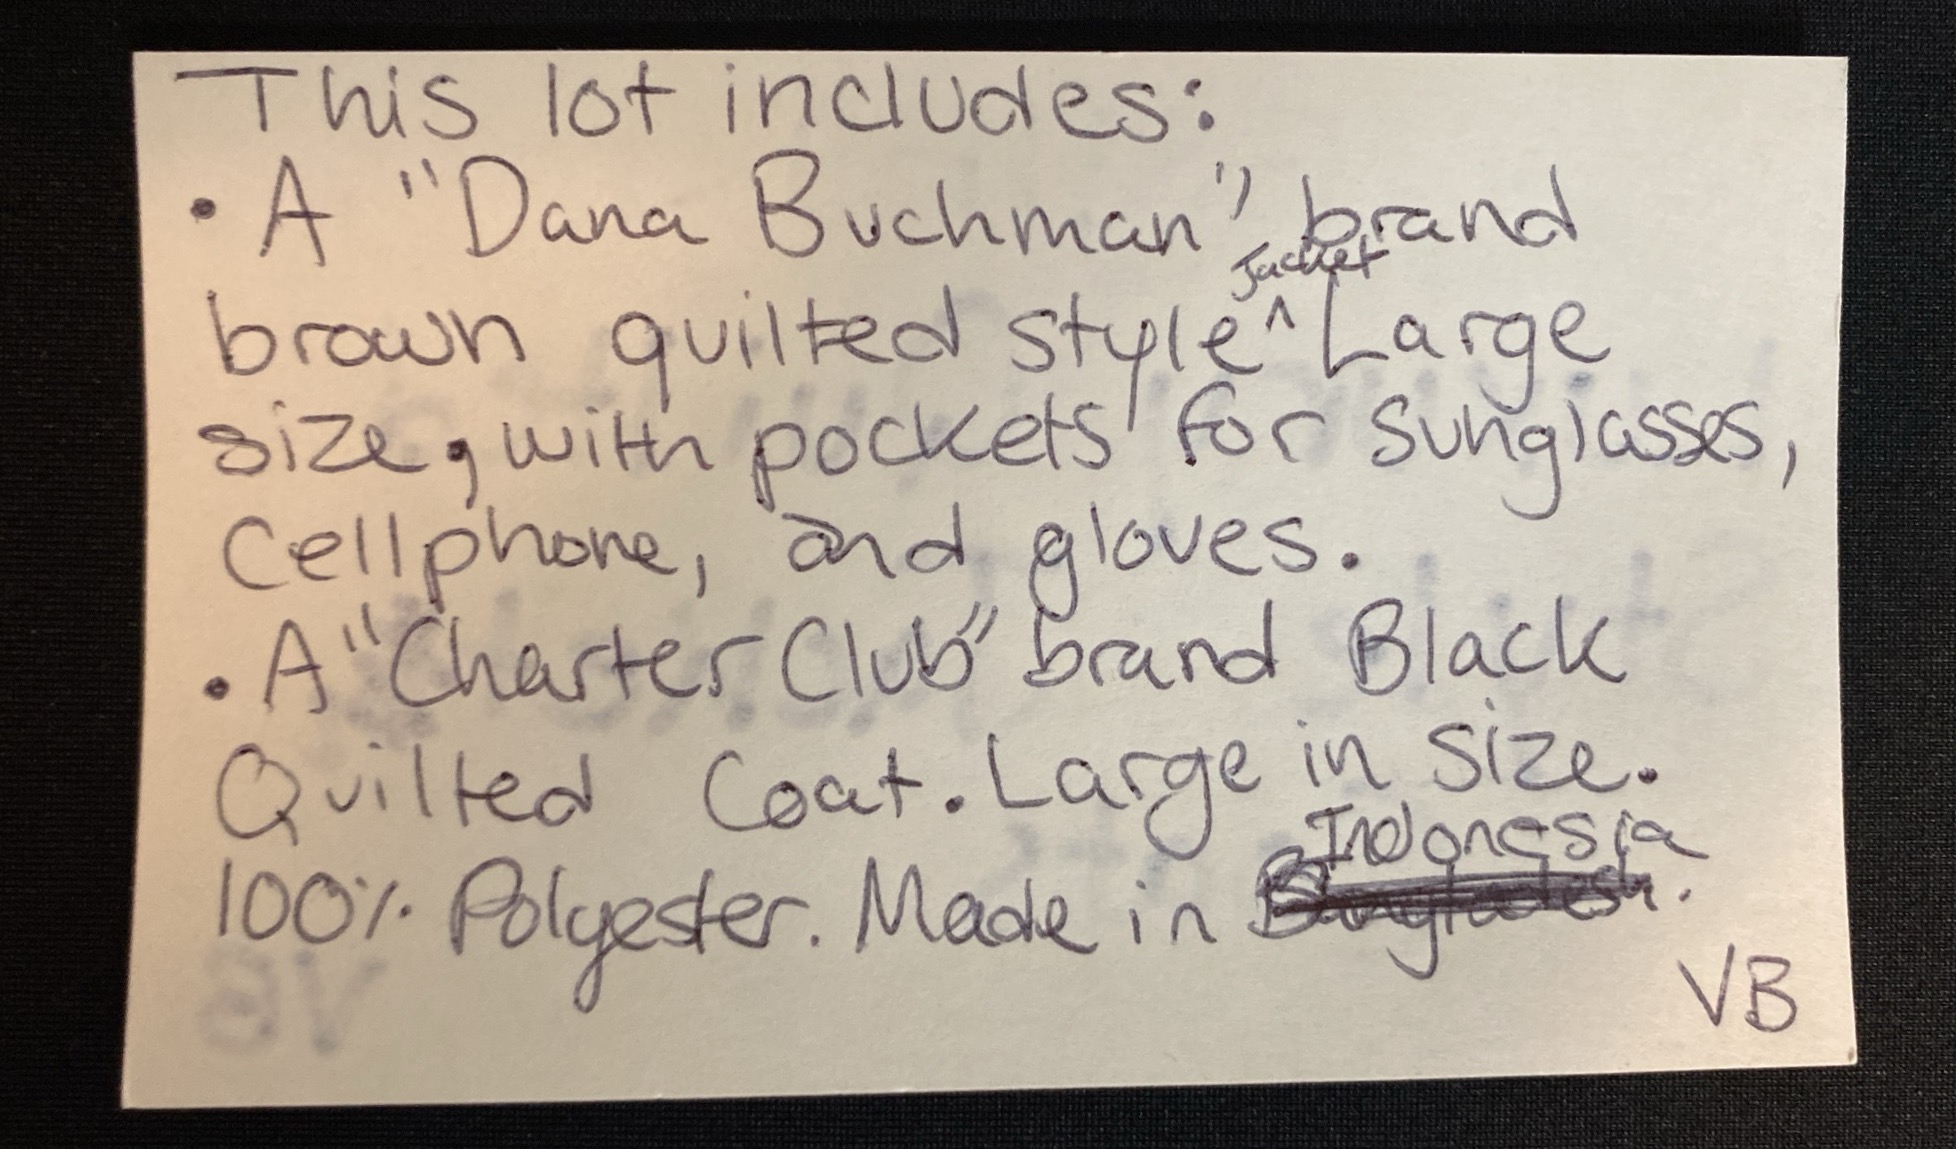 This lot includes:
• A "Dana Buchman" brand
brown quilted style ^ Jacket Large
size, with pockets for sunglasses,
Cellphone, and gloves.
• A "Charter Club" brand Black
Quilted Coat. Large in size.
Indonesia
100% Polyester. Made in Bangladesh.
VB